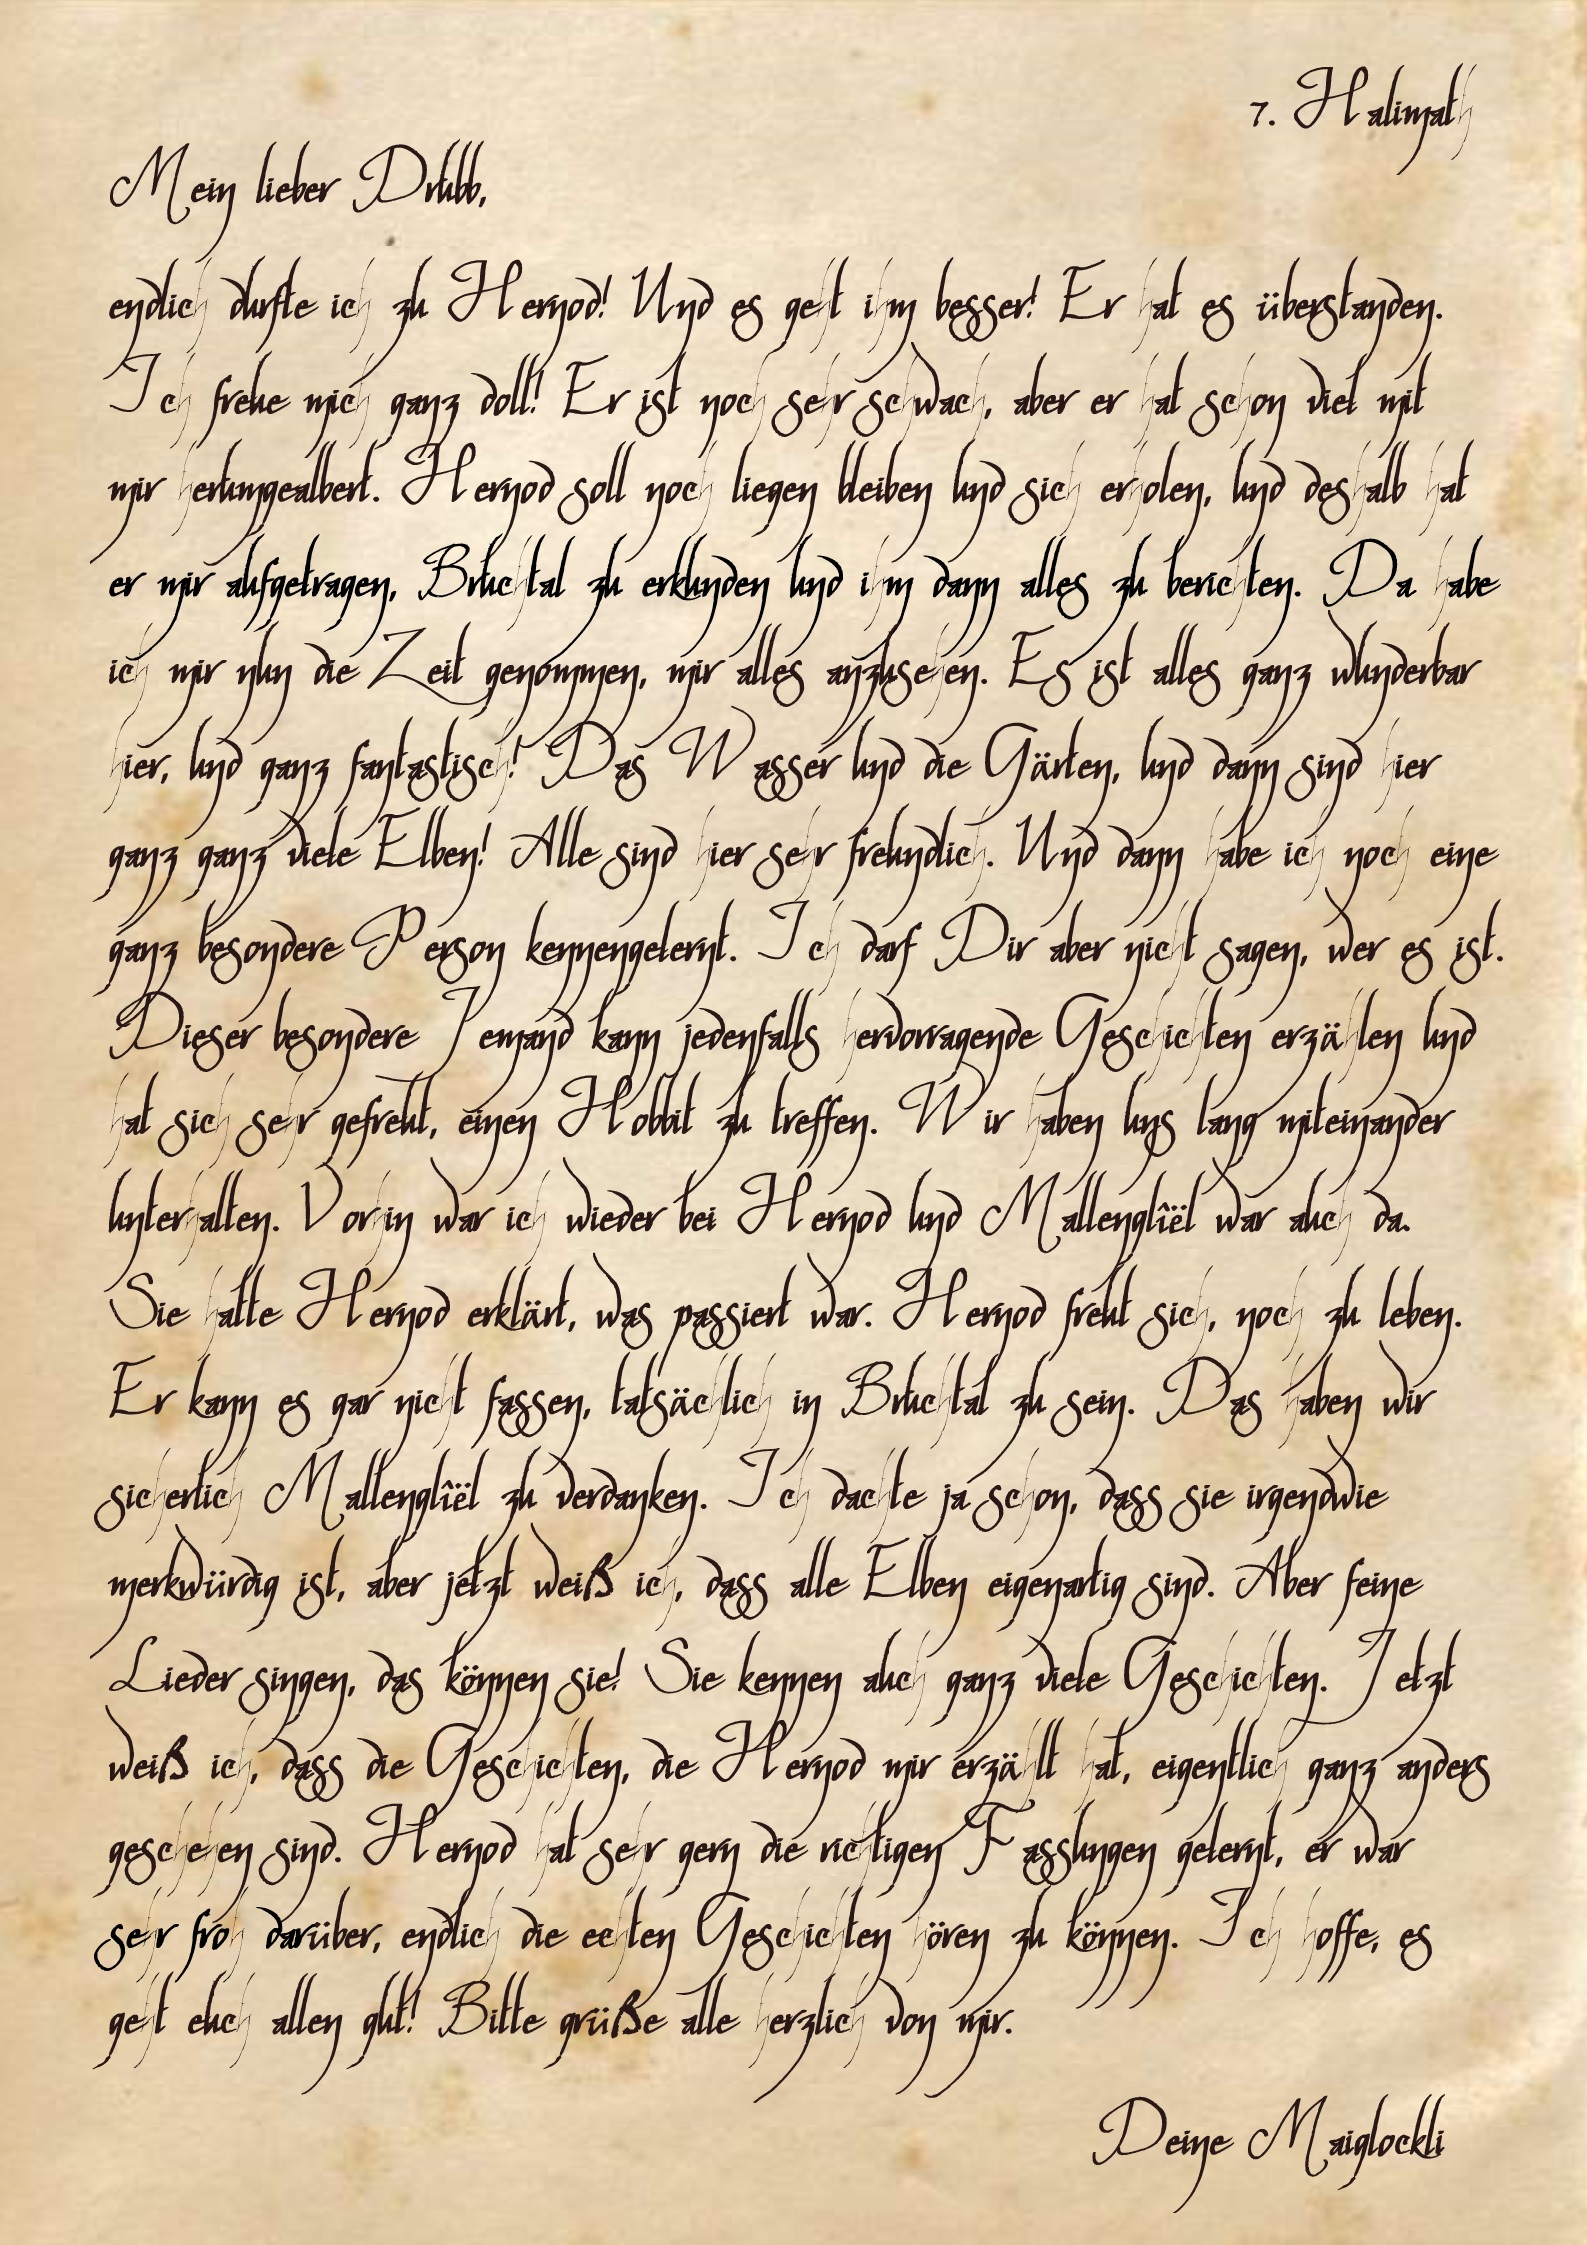 7. Halimath
Mein lieber Drubb,
endlich durfte ich zu Hernod! Und es geht ihm besser! Er hat es überstanden.
Ich freue mich ganz doll! Er ist noch sehr schwach, aber er hat schon viel mit
mir herumgealbert. Hernod soll noch liegen bleiben und sich erholen, und deshalb hat
er mir aufgetragen, Bruchtal zu erkunden und ihm dann alles zu berichten. Da habe
ich mir nun die Zeit genommen, mir alles anzusehen. Es ist alles ganz wunderbar
hier, und ganz fantastisch! Das Wasser und die Gärten, und dann sind hier
ganz ganz viele Elben! Alle sind hier sehr freundlich. Und dann habe ich noch eine
ganz besondere Person kennengelernt. Ich darf Dir aber nicht sagen, wer es ist.
Dieser besondere Jemand kann jedenfalls hervorragende Geschichten erzählen und
hat sich sehr gefreut, einen Hobbit zu treffen. Wir haben uns lang miteinander
unterhalten. Vorhin war ich wieder bei Hernod und Mallenglîël war auch da.
Sie hatte Hernod erklärt, was passiert war. Hernod freut sich, noch zu leben.
Er kann es gar nicht fassen, tatsächlich in Bruchtal zu sein. Das haben wir
sicherlich Mallenglîël zu verdanken. Ich dachte ja schon, dass sie irgendwie
merkwürdig ist, aber jetzt weiß ich, dass alle Elben eigenartig sind. Aber feine
Lieder singen, das können sie! Sie kennen auch ganz viele Geschichten. Jetzt
weiß ich, dass die Geschichten, die Hernod mir erzählt hat, eigentlich ganz anders
geschehen sind. Hernod hat sehr gern die richtigen Fassungen gelernt, er war
sehr froh darüber, endlich die echten Geschichten hören zu können. Ich hoffe, es
geht euch allen gut! Bitte grüße alle herzlich von mir.
Deine Maiglockli